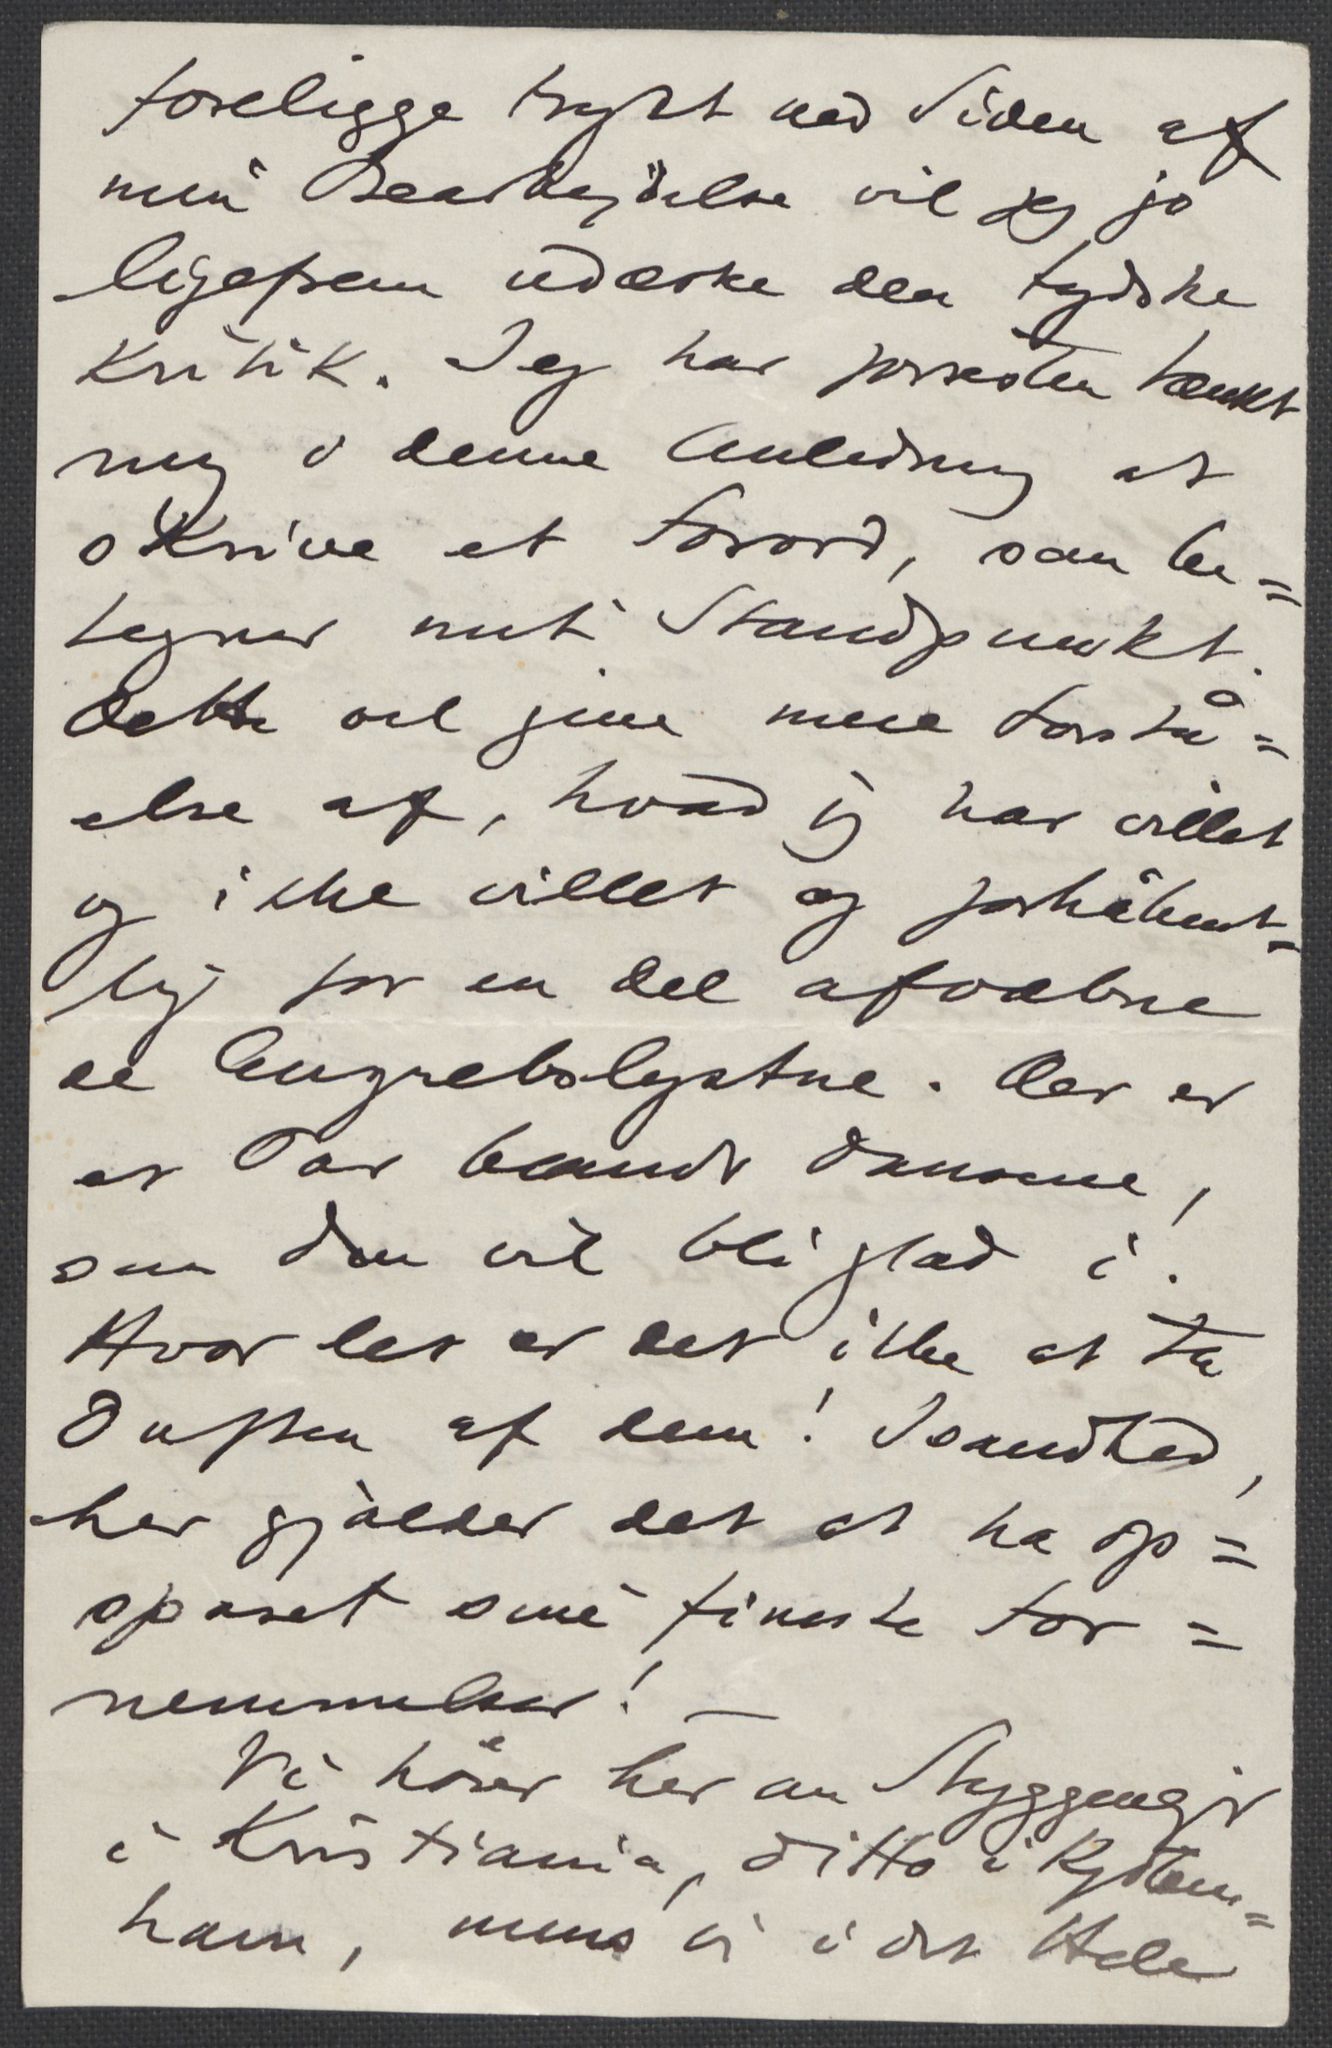 foreligge trykt ved Siden af
min Bearbejdelse vil jeg jo
ligefrem udæske den tydske
Kritik. Jeg har forresten tænkt
mig i denne Anledning at
skrive et Forord, som be=
tegner mit Standpunkt.
Dette vil give mere Forstå=
else af, hvad jeg har villet
og ikke villet og forhåbent=
lig for en del afvæbne
de Angrebslystne. Der er
et Par blandt Dansene,
som Du vil bli glad i.
Hvor let er det ikke at ta
Duften af dem! Isandhed,
her gjælder det at ha op=
sparet sine fineste For=
nemmelser! —
Vi hører her om Styggevejr
i Kristiania, ditto i Kjøben=
havn, mens vi i det Hele